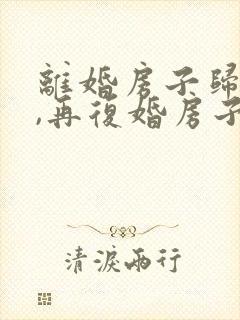 離婚房子歸
,再復婚房子
清淚兩行